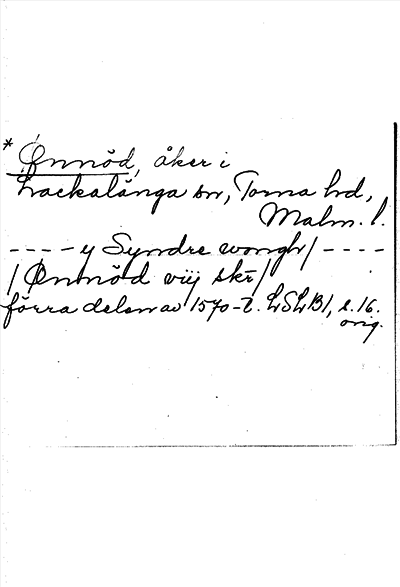 * Ønnöd, åker i
Lackalänga sn, Torna hd,
Malm. l.
---- y Syndre wongh/ ----
/ Ønnöd viij skr/
förra delen av 1570-t. LSLB1, s. 16.
orig.